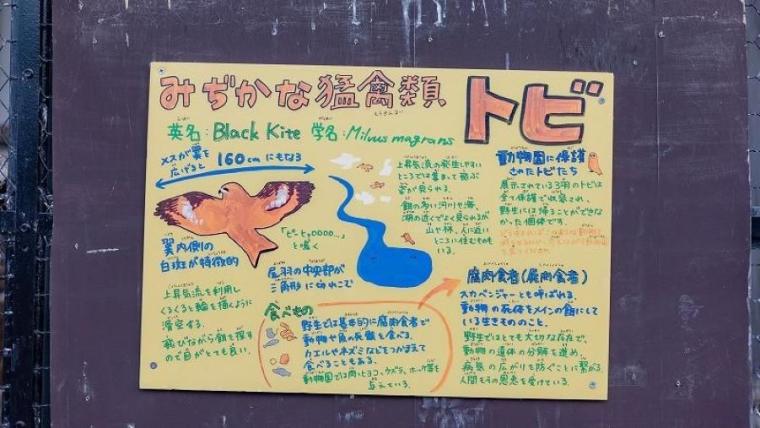 みぢかな猛禽類 トビ
もうきんるい
英名:Black Kite 学名:Milvus magrans
メスが翼を
広げると 160cmにもなる
「ピーヒョロロロロ…」
と鳴く
翼内側の
白斑が特徴的
尾羽の中央部が
三角形に切れこむ
上昇気流を利用し
くるくると輪を描くように
滑空する。
飛びながら餌を探す
ので目がとても良い。
上昇気流の発生しやすい
ところでは集まって飛ぶ
姿が見られる。
餌の多い河川や海、
湖の近くでよく見られるが
山や林、人に近い
ところに住むものも
いる。
動物園に保護
されたトビたち
展示されている3羽のトビは
全て保護で収容され、
野生には帰ることができな
かった個体です。
食べもの
野生では基本的に腐肉食者で
動物や魚の死骸を食べる。
カエルやネズミなどをつかまえて
食べることもある。
動物園では肉、ヒヨコ、ウズラ、ホッケ等を
与えている。
腐肉食者(屍肉食者)
スカベンジャーとも呼ばれる。
動物の死体をメインの餌にして
いる生きもののこと。
野生ではとても大切な存在で、
動物の遺体の分解を進め、
病気の広がりを防ぐことに繋がる。
人間もその恩恵を受けている。